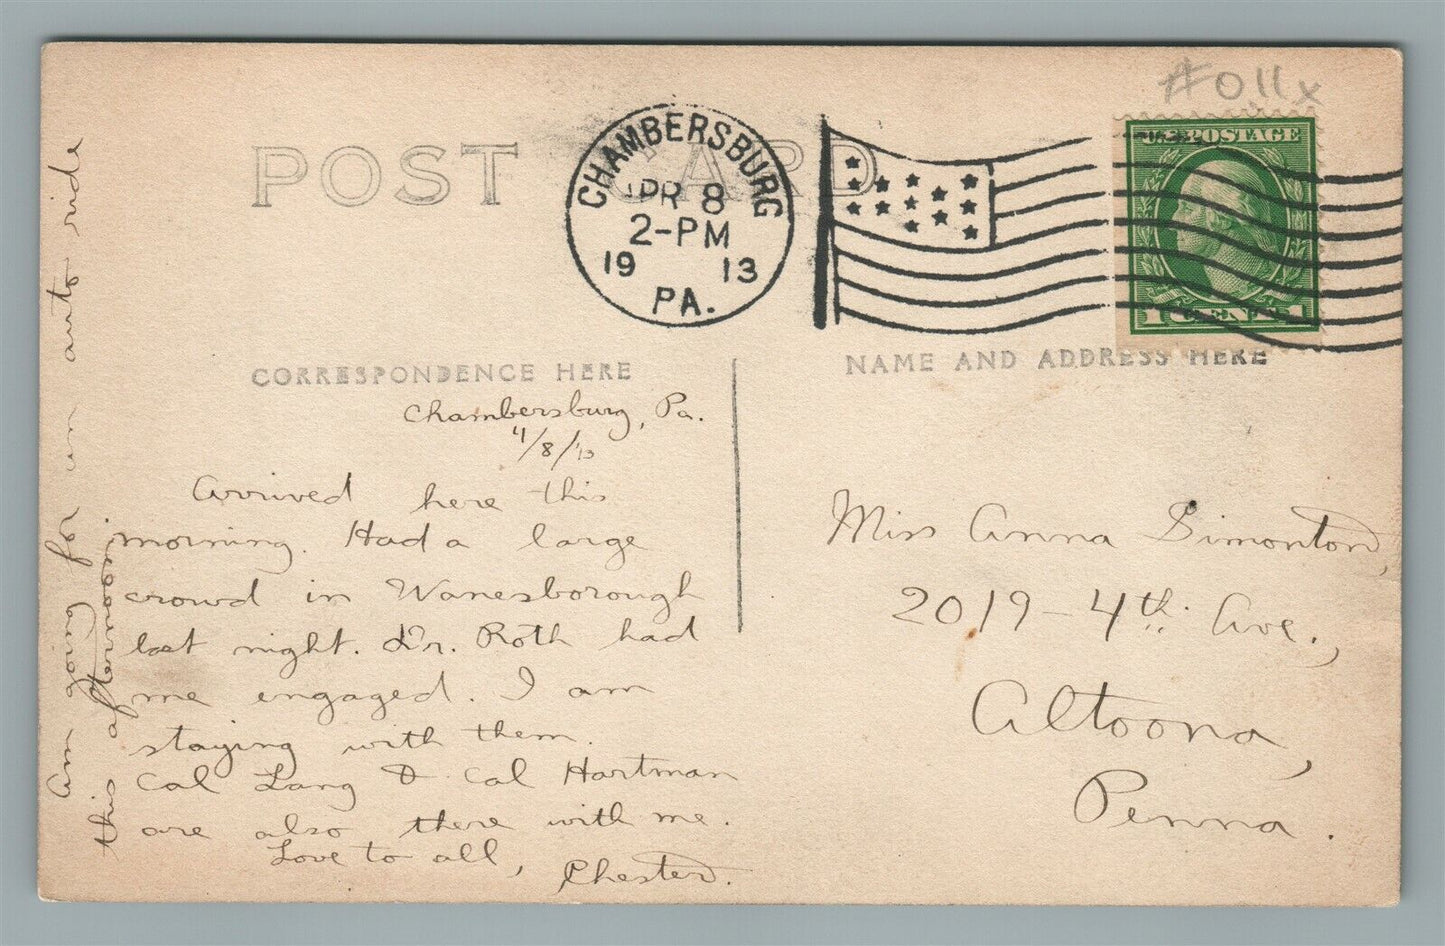 #011x
POST CARD
CHAMBERSBURG
APR 8
2-PM
19 13
PA.
U.S. POSTAGE
1 CENT 1
CORRESPONDENCE HERE
NAME AND ADDRESS HERE
Chambersburg, Pa.
4/8/13
Arrived here this
morning. Had a large
crowd in Wanesborough
last night. Dr. Roth had
me engaged. I am
staying with them.
Cal Lang & Cal Hartman
are also there with me.
Love to all,
Chester.
Am going for an auto ride
this afternoon.
Miss Anna Simonton,
2019 - 4th Ave.,
Altoona,
Penna.